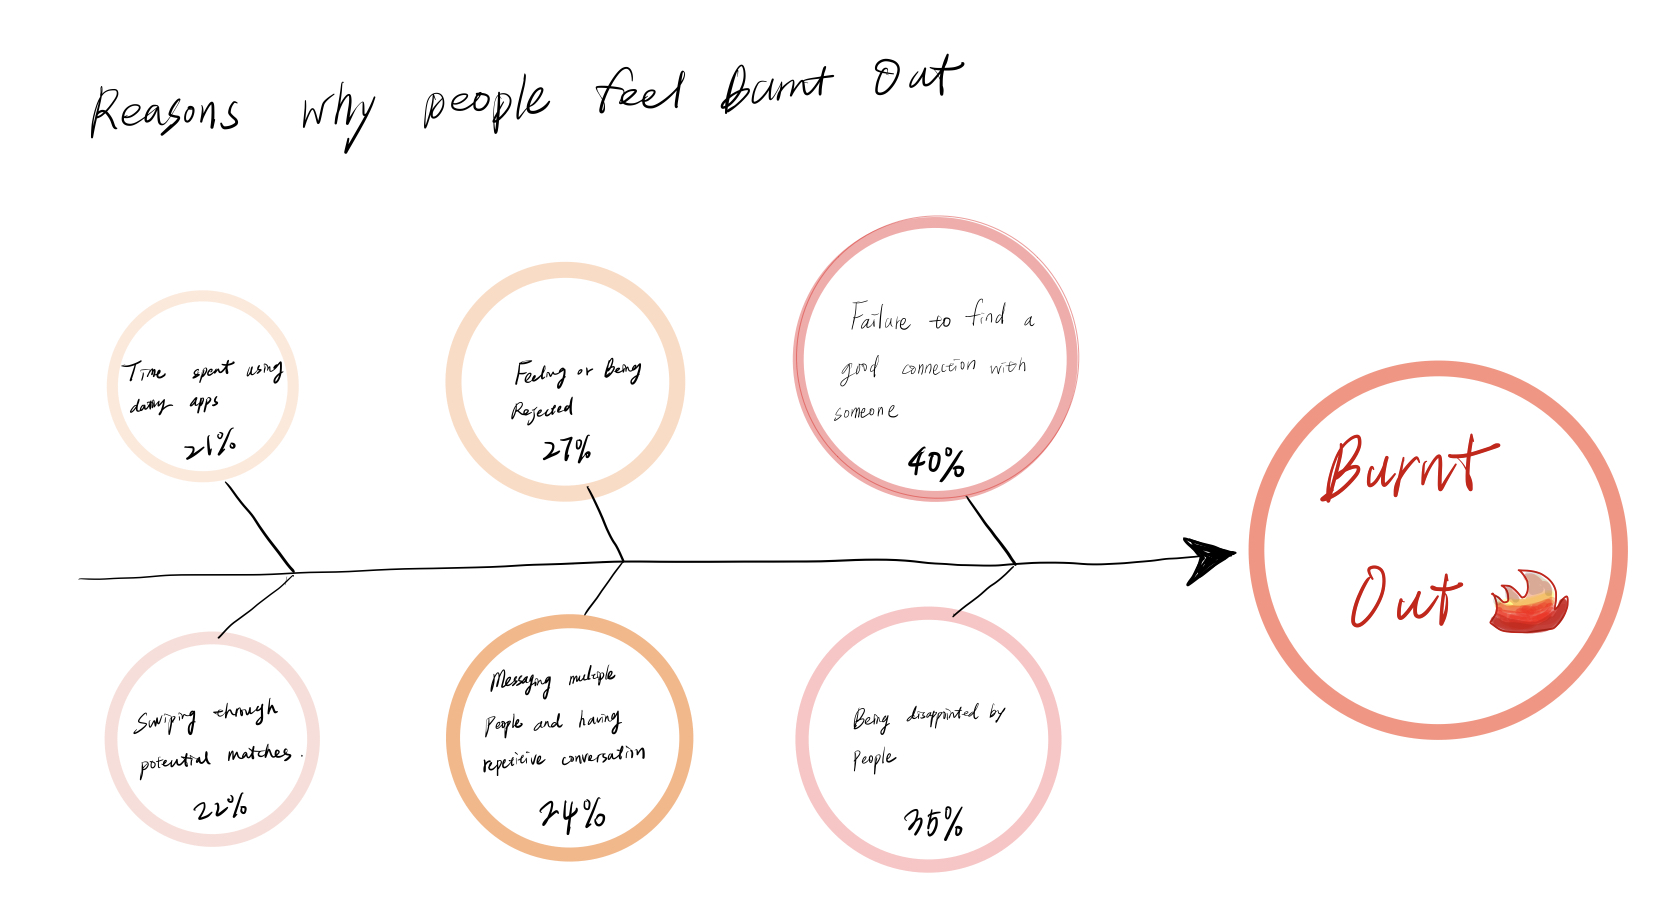 Reasons why people feel Burnt Out
Time spent using
dating apps
21%
Feeling or Being
Rejected
27%
Failure to find a
good connection with
someone
40%
Burnt
Out
Swiping through
potential matches.
22%
Messaging multiple
People and having
repetitive conversation
24%
Being disappointed by
People
35%